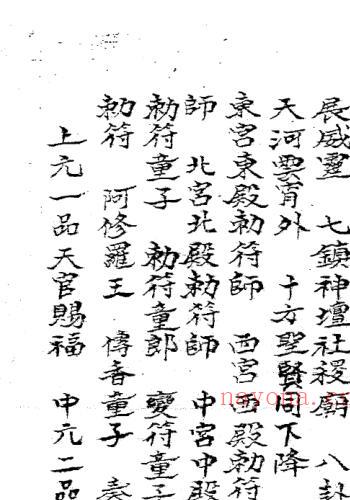 展威靈 七鎮神壇社稷廟 八
天河雲宵外 十方聖賢同下降
東宮東殿勅符師 西宮西殿勅符
師 北宮北殿勅符師 中宮中殿
勅符童子 勅符童郎 變符童子
勅符 阿修羅王 傳香童子 奏
上元一品天官賜福 中元二品